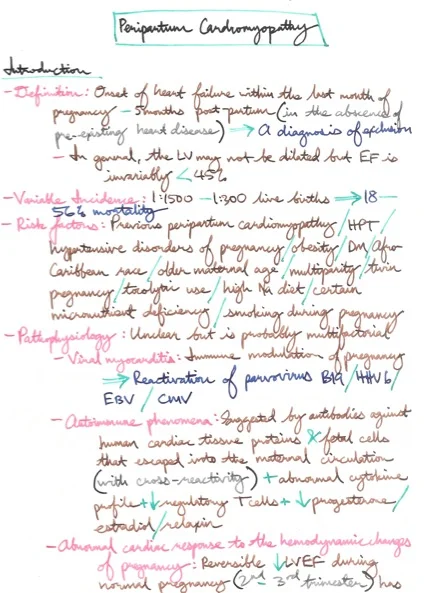 Peripartum Cardiomyopathy
Introduction
- Definition: Onset of heart failure within the last month of
pregnancy - 5 months post-partum (in the absence of
pre-existing heart disease) ⇒ A diagnosis of exclusion
- In general, the LV may not be dilated but EF is
invariably < 45%
- Variable Incidence: 1:1500 - 1:300 live births ⇒ 18 -
56% mortality
- Risk factors: Previous peripartum cardiomyopathy / HPT /
hypertensive disorders of pregnancy / obesity / DM / Afro-
Caribbean race / older maternal age / multiparity / twin
pregnancy / tocolytic use / high Na diet / certain
micronutrient deficiency / smoking during pregnancy
- Pathophysiology: Unclear but is probably multifactorial
- Viral myocarditis: Immune modulation of pregnancy
⇒ Reactivation of parvovirus B19 / HHV6 /
EBV / CMV
- Autoimmune phenomena: Suggested by antibodies against
human cardiac tissue proteins & fetal cells
that escaped into the maternal circulation
(with cross-reactivity) + abnormal cytokine
profile + ↓ regulatory T cells + ↓ progesterone /
estradiol / relaxin
- Abnormal cardiac response to the hemodynamic changes
of pregnancy: Reversible ↓ LVEF during
normal pregnancy (2nd - 3rd trimester) has